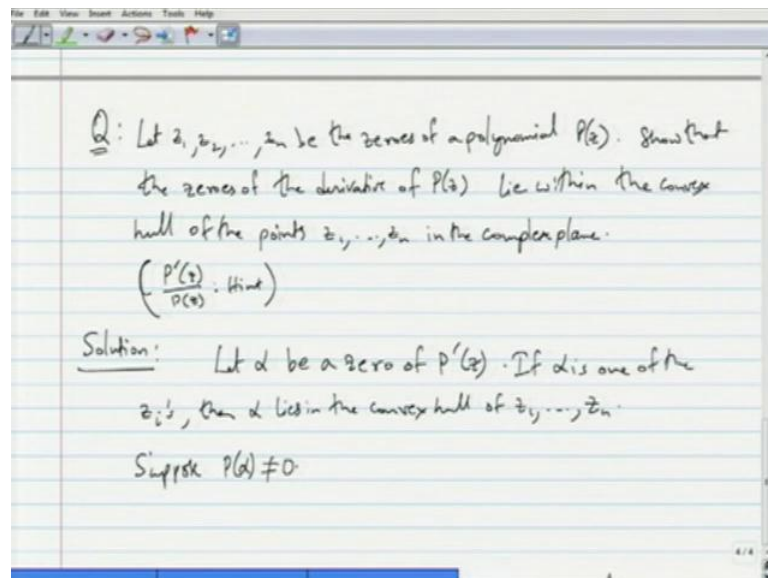 File Edit View Insert Actions Tools Help
Q: Let z₁, z₂, ..., zₙ be the zeroes of a polynomial P(z). Show that
the zeroes of the derivative of P(z) lie within the convex
hull of the points z₁, ..., zₙ in the complex plane.
(P'(z)/P(z) : Hint)
Solution: Let α be a zero of P'(z). If α is one of the
zᵢ's, then α lies in the convex hull of z₁, ..., zₙ.
Suppose P(α) ≠ 0.
4/4